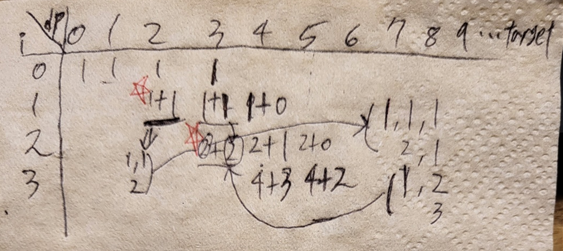 i dp 0 1 2 3 4 5 6 7 8 9 ... target
0 1 1 1 1
1 1+1 1+1 1+0
2 2+1 2+0
3 4+3 4+2
1,1
2
1,1,1
2,1
1,2
3